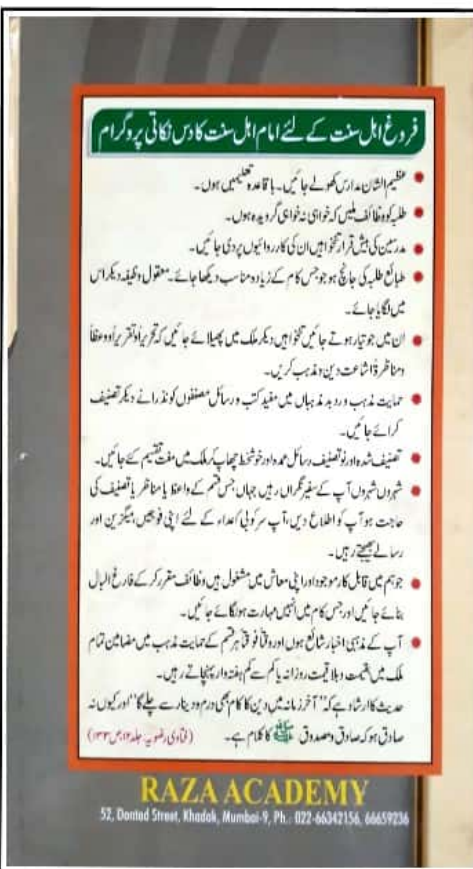 فروغ اہل سنت کے لئے امام اہل سنت کا دس نکاتی پروگرام
عظیم الشان مدارس کھولے جائیں۔ باقاعدہ تعلیمیں ہوں۔
طلبہ کو وظائف ملیں کہ خواہی نہ خواہی گرویدہ ہوں۔
مدرسین کی بیش قرار تنخواہیں ان کی کارروائیوں پر دی جائیں۔
طبائع طلبہ کی جانچ ہو جو جس کام کے زیادہ مناسب دیکھا جائے۔ معقول وظیفہ دیکر اس
میں لگایا جائے۔
ان میں جو تیار ہوتے جائیں تنخواہیں دیکر ملک میں پھیلائے جائیں کہ تحریراً و تقریراً و وعظاً
و مناظرةً اشاعت دین و مذہب کریں۔
حمایت مذہب و رد بد مذہباں میں مفید کتب و رسائل مصنفوں کو نذرانے دیکر تصنیف
کرائے جائیں۔
تصنیف شدہ اور نو تصنیف رسائل عمدہ اور خوشخط چھاپ کر ملک میں مفت تقسیم کئے جائیں۔
شہروں شہروں آپ کے سفیر نگراں رہیں جہاں جس قسم کے واعظ یا مناظر یا تصنیف کی
حاجت ہو آپ کو اطلاع دیں، آپ سرکوبی اعداء کے لئے اپنی فوجیں، میگزین اور
رسالے بھیجتے رہیں۔
جو ہم میں قابل کار موجود اور اپنی معاش میں مشغول ہیں وظائف مقرر کر کے فارغ البال
بنائے جائیں اور جس کام میں انہیں مہارت ہو لگائے جائیں۔
آپ کے مذہبی اخبار شائع ہوں اور وقتاً فوقتاً ہر قسم کے حمایت مذہب میں مضامین تمام
ملک میں بقیمت و بلا قیمت روزانہ یا کم سے کم ہفتہ وار پہنچاتے رہیں۔
حدیث کا ارشاد ہے کہ "آخر زمانہ میں دین کا کام بھی درم و دینار سے چلے گا" اور کیوں نہ
صادق ہو کہ صادق و مصدوق ﷺ کا کلام ہے۔ (فتاویٰ رضویہ جلد ۱۲، ص ۱۳۳)
RAZA ACADEMY
52, Dontad Street, Khadak, Mumbai-9, Ph.: 022-66342156, 66659236